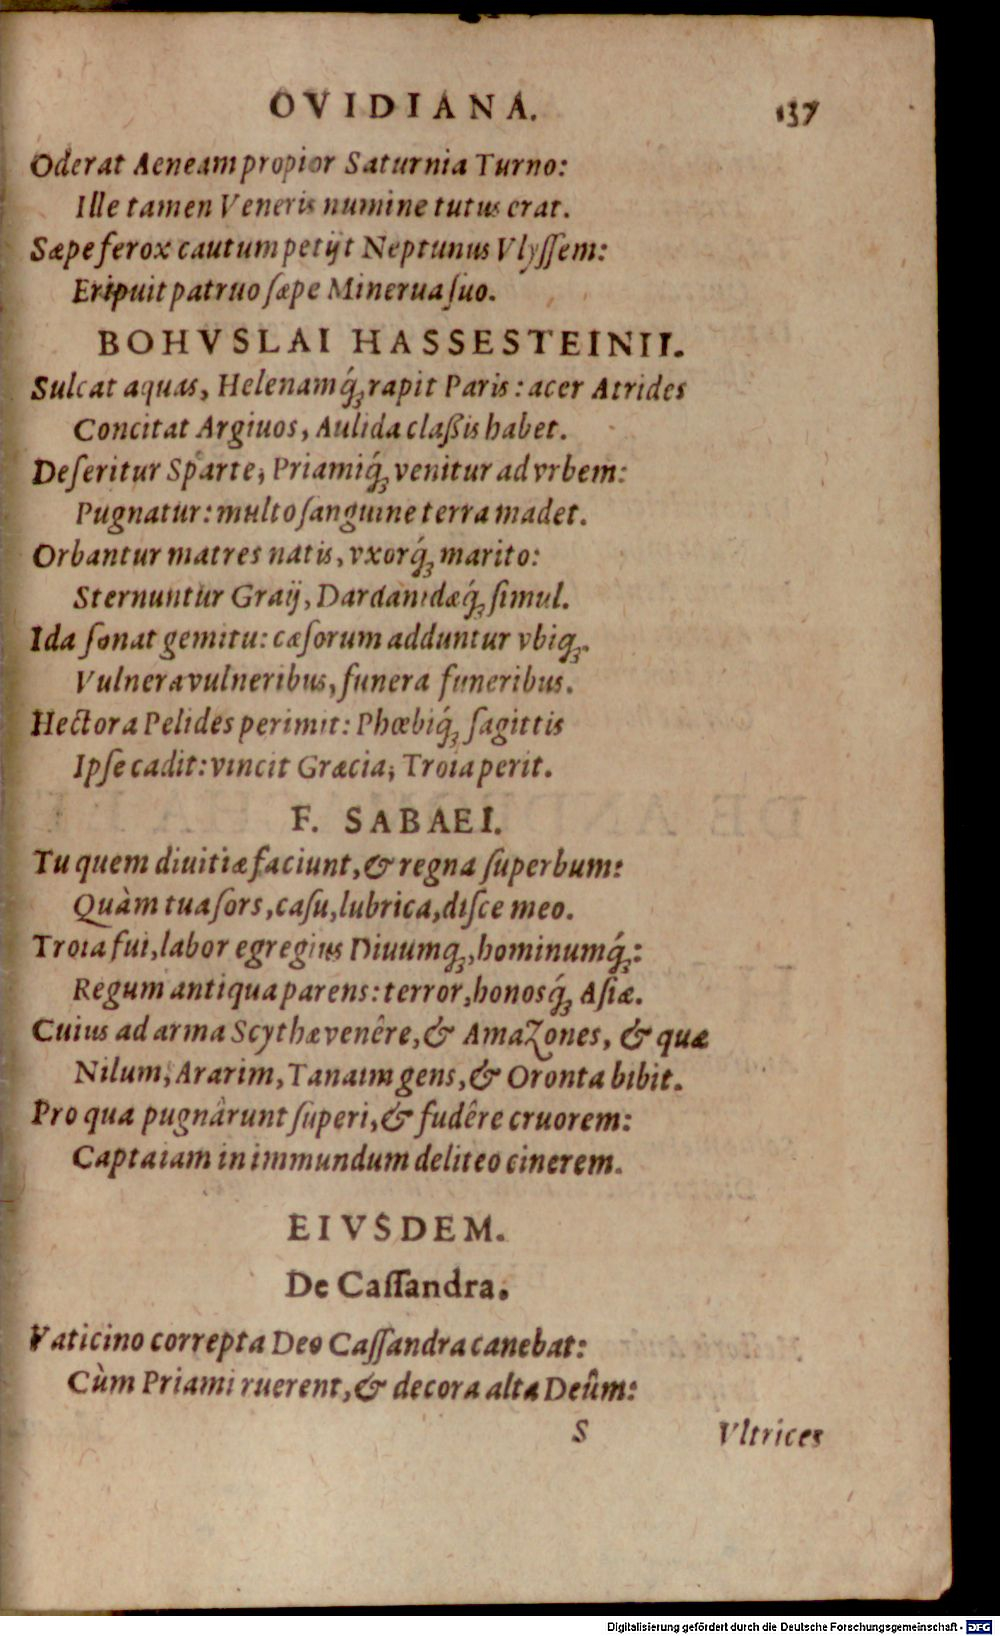 OVIDIANA. 137
Oderat Aeneam propior Saturnia Turno:
Ille tamen Veneris numine tutus erat.
Sæpe ferox cautum petijt Neptunus Vlyſſem:
Eripuit patruo ſæpe Minerua ſuo.
BOHVSLAI HASSESTEINII.
Sulcat aquas, Helenamq́; rapit Paris: acer Atrides
Concitat Argiuos, Aulida claßis habet.
Deſeritur Sparte; Priamiq́; venitur ad vrbem:
Pugnatur: multo ſanguine terra madet.
Orbantur matres natis, vxorq́; marito:
Sternuntur Graij, Dardanidæq́; ſimul.
Ida ſonat gemitu: cæſorum adduntur vbiq;.
Vulnera vulneribus, funera funeribus.
Hectora Pelides perimit: Phœbiq́; ſagittis
Ipſe cadit: vincit Græcia; Troia perit.
F. SABAEI.
Tu quem diuitiæ faciunt, & regna ſuperbum:
Quàm tua ſors, caſu, lubrica, diſce meo.
Troia fui, labor egregius Diuumq;, hominumq́;:
Regum antiqua parens: terror, honosq́; Aſiæ.
Cuius ad arma Scythæ venêre, & Amazones, & quæ
Nilum, Ararim, Tanaim gens, & Oronta bibit.
Pro qua pugnârunt ſuperi, & fudêre cruorem:
Capta iam in immundum deliteo cinerem.
EIVSDEM.
De Caſſandra.
Vaticino correpta Deo Caſſandra canebat:
Cùm Priami ruerent, & decora alta Deûm:
S Vltrices
Digitalisierung gefördert durch die Deutsche Forschungsgemeinschaft - DFG